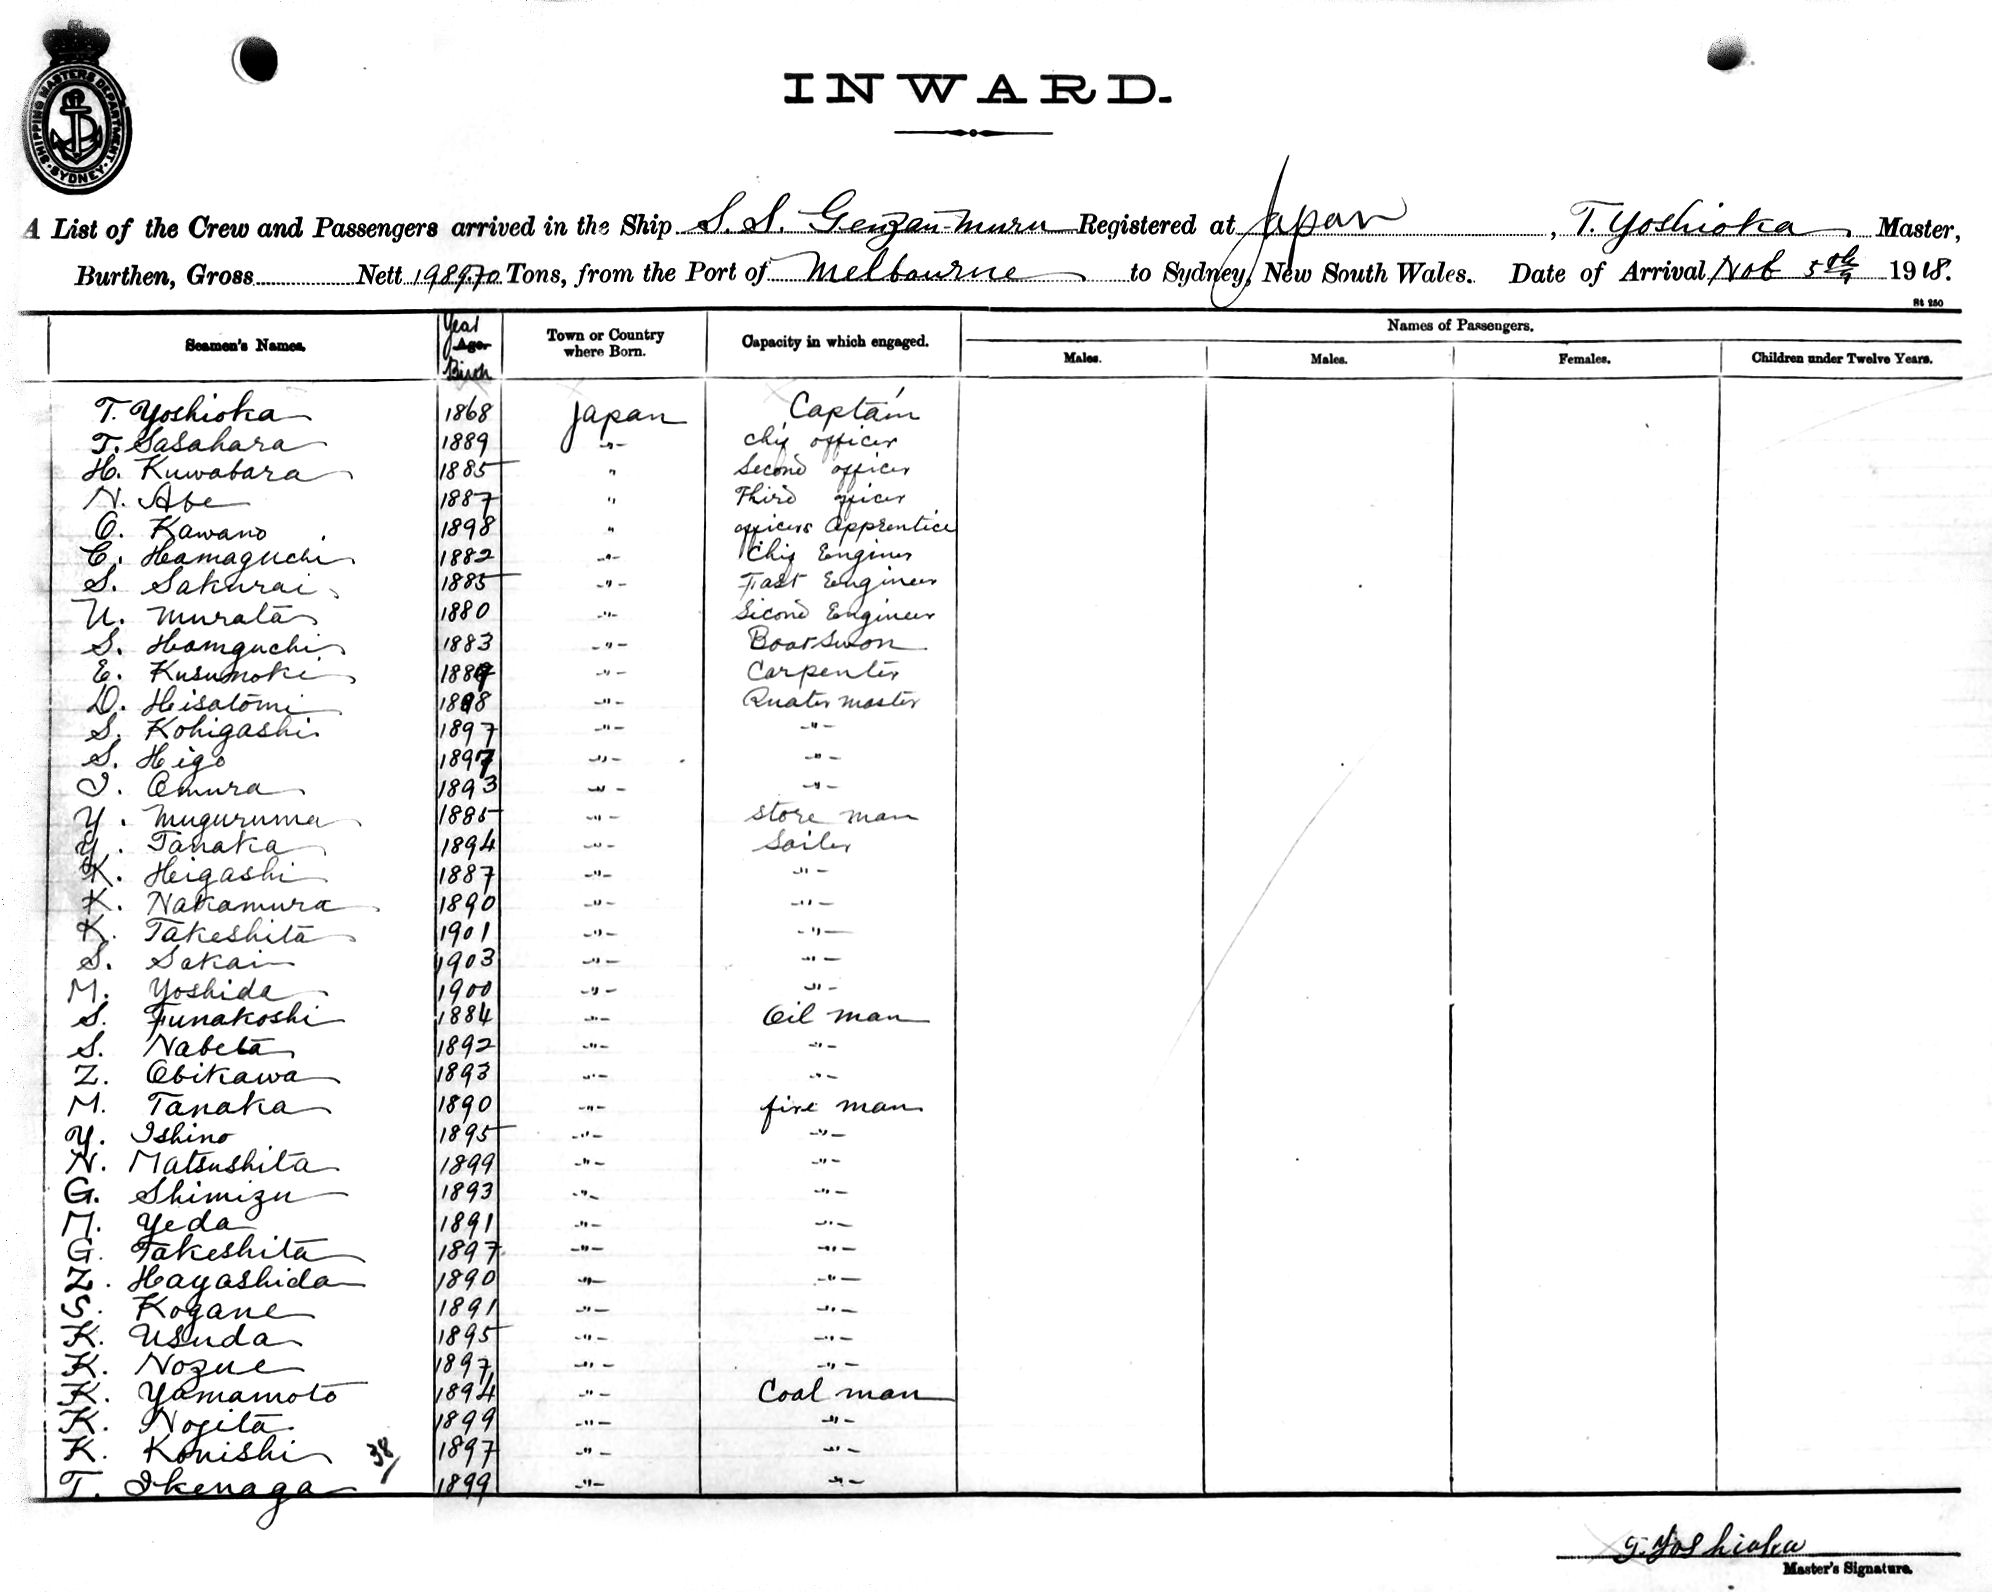 SHIPPING MASTERS DEPARTMENT · SYDNEY ·
INWARD.
A List of the Crew and Passengers arrived in the Ship S. S. Genzan-maru Registered at Japan, T. Yoshioka Master,
Burthen, Gross Nett 1989.70 Tons, from the Port of Melbourne to Sydney, New South Wales. Date of Arrival Nob 5th 1918.
St 250
Seamen's Names. Year Age Birth Town or Country where Born. Capacity in which engaged. Names of Passengers.
Males. Males. Females. Children under Twelve Years.
T. Yoshioka 1868 Japan Captain
T. Sasahara 1889 -"- Chif officer
H. Kuwabara 1885 " Second officer
N. Abe 1887 " Third officer
O. Kawano 1898 " officers Apprentice
C. Hamaguchi 1882 -"- Chif Enginer
S. Sakurai 1885 -"- Fast Engineer
U. Murata 1880 -"- Sicond Engineer
S. Hamguchi 1883 -"- Boatswon
E. Kusunoki 1889 -"- Carpenter
D. Hisatomi 1898 -"- Quater master
S. Kohigashi 1897 -"- -"-
S. Higo 1897 -"- -"-
I. Omura 1893 -"- -"-
Y. Muguruma 1885 -"- Store man
Y. Tanaka 1894 -"- Sailer
K. Heigashi 1887 -"- -"-
K. Nakamura 1890 -"- -"-
K. Takeshita 1901 -"- -"-
S. Sakai 1903 -"- -"-
M. Yoshida 1900 -"- -"-
S. Funakoshi 1884 -"- Oil man
S. Nabeta 1892 -"- -"-
Z. Obikawa 1893 -"- -"-
M. Tanaka 1890 -"- fire man
Y. Ishino 1895 -"- -"-
N. Matsushita 1899 -"- -"-
G. Shimizu 1893 -"- -"-
M. Yeda 1891 -"- -"-
G. Takeshita 1897 -"- -"-
Z. Hayashida 1890 -"- -"-
S. Kogane 1891 -"- -"-
K. Usuda 1895 -"- -"-
K. Nozue 1897 -"- -"-
K. Yamamoto 1894 -"- Coal man
K. Nojita 1899 -"- -"-
K. Konishi 38/ 1897 -"- -"-
T. Ikenaga 1899 -"- -"-
T. Yoshioka
Master's Signature.